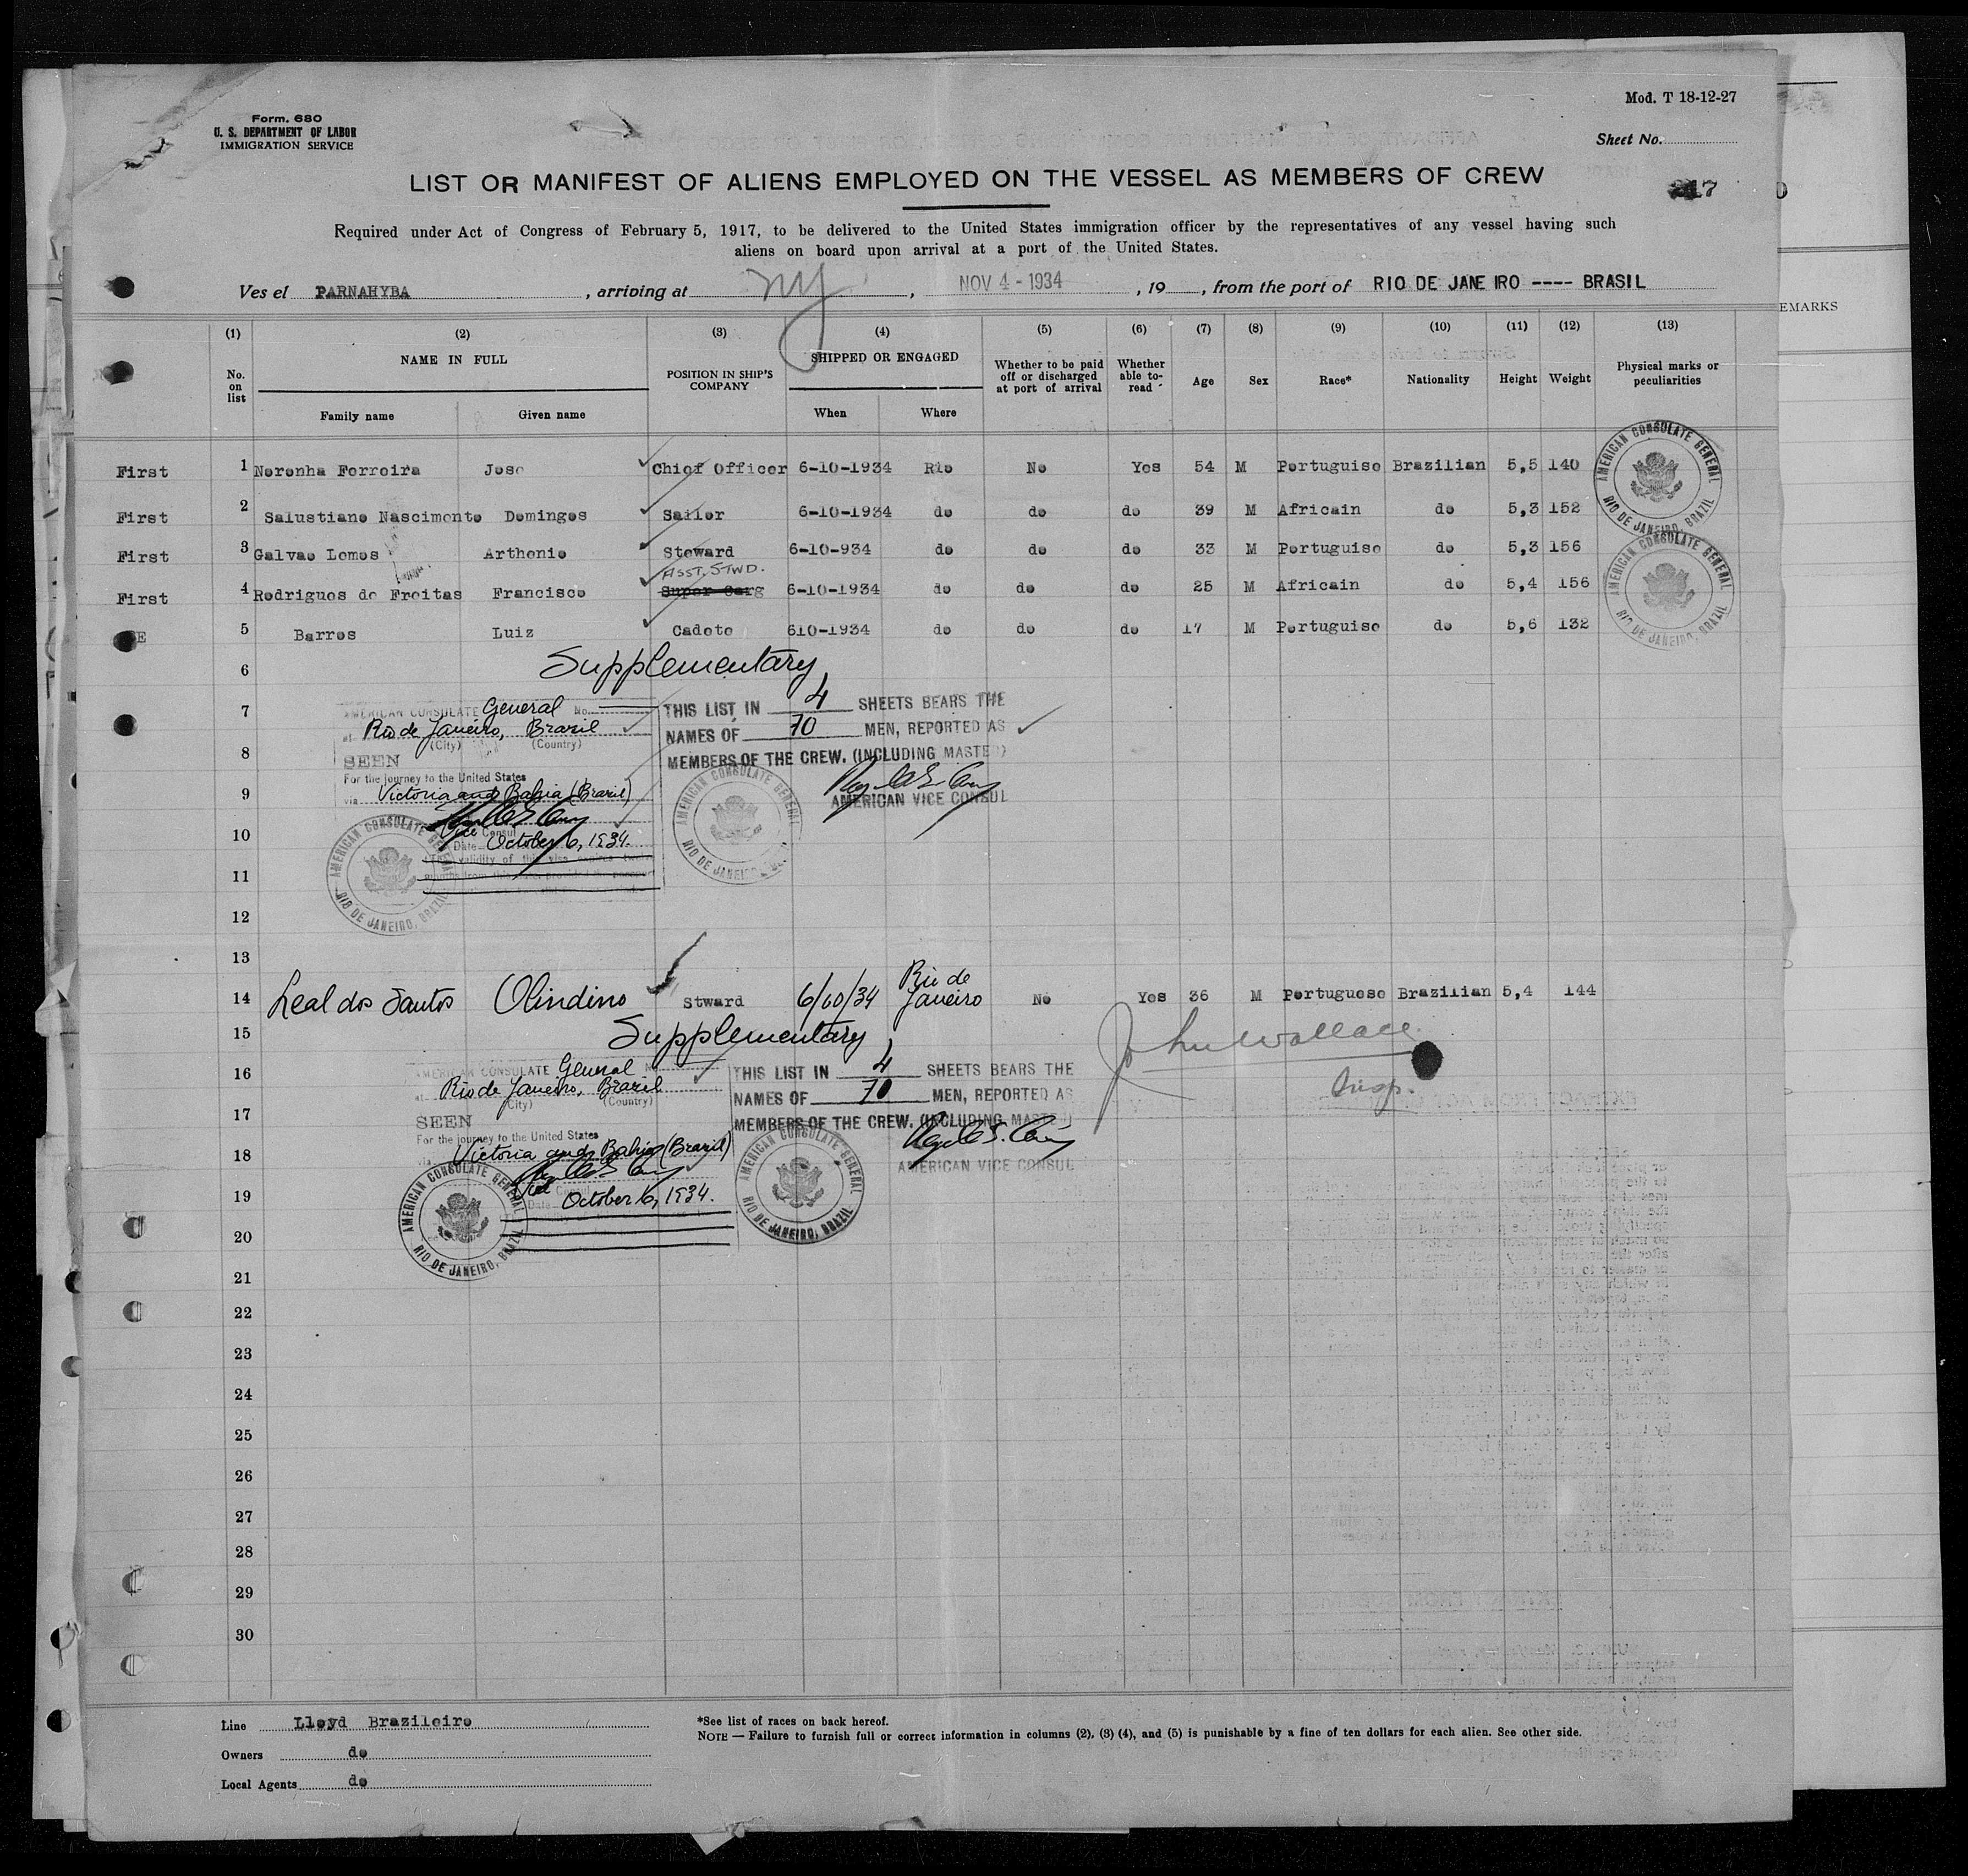 Form. 680
U. S. DEPARTMENT OF LABOR
IMMIGRATION SERVICE
Mod. T 18-12-27
Sheet No.
LIST OR MANIFEST OF ALIENS EMPLOYED ON THE VESSEL AS MEMBERS OF CREW
Required under Act of Congress of February 5, 1917, to be delivered to the United States immigration officer by the representatives of any vessel having such
aliens on board upon arrival at a port of the United States.
Ves el PARNAHYBA , arriving at NY , NOV 4 - 1934 , 19 , from the port of RIO DE JANE IRO ---- BRASIL
EMARKS
(1) (2) (3) (4) (5) (6) (7) (8) (9) (10) (11) (12) (13)
No. on list
NAME IN FULL
Family name Given name
POSITION IN SHIP'S COMPANY
SHIPPED OR ENGAGED
When Where
Whether to be paid off or discharged at port of arrival
Whether able to- read
Age Sex Race* Nationality Height Weight
Physical marks or peculiarities
First 1 Noronha Ferreira Jose Chief Officer 6-10-1934 Rio No Yes 54 M Portuguise Brazilian 5,5 140
First 2 Salustiano Nascimento Domingos Sailor 6-10-1934 do do do 39 M Africain do 5,3 152
First 3 Galvao Lomos Arthonio Steward 6-10-934 do do do 33 M Portuguise do 5,3 156
ASST. STWD.
First 4 Rodrigues de Freitas Francisco Super Carg 6-10-1934 do do do 25 M Africain do 5,4 156
5 Barros Luiz Cadete 610-1934 do do do 17 M Portuguise do 5,6 132
AMERICAN CONSULATE GENERAL
RIO DE JANEIRO, BRAZIL
AMERICAN CONSULATE GENERAL
RIO DE JANEIRO, BRAZIL
6 Supplementary
7 AMERICAN CONSULATE General No.
at Rio de Janeiro, Brazil
(City) (Country)
8 SEEN
For the journey to the United States
9 via Victoria and Bahia (Brazil)
10 Vice Consul
Date October 6, 1934.
THIS LIST IN 4 SHEETS BEARS THE
NAMES OF 70 MEN, REPORTED AS
MEMBERS OF THE CREW. (INCLUDING MASTER)
AMERICAN VICE CONSUL
AMERICAN CONSULATE GENERAL
RIO DE JANEIRO, BRAZIL
AMERICAN CONSULATE GENERAL
RIO DE JANEIRO
11
12
13
14 Leal dos Santos Olindino Stward 6/10/34 Rio de Janeiro No Yes 36 M Portuguese Brazilian 5,4 144
15 Supplementary
John Wallace
Insp.
16 AMERICAN CONSULATE General
at Rio de Janeiro, Brazil
(City) (Country)
17 SEEN
For the journey to the United States
18 via Victoria and Bahia (Brazil)
Vice
19 Date October 6, 1934.
THIS LIST IN 4 SHEETS BEARS THE
NAMES OF 70 MEN, REPORTED AS
MEMBERS OF THE CREW. (INCLUDING MASTER)
AMERICAN VICE CONSUL
AMERICAN CONSULATE GENERAL
RIO DE JANEIRO, BRAZIL
AMERICAN CONSULATE GENERAL
RIO DE JANEIRO, BRAZIL
20
21
22
23
24
25
26
27
28
29
30
Line Lloyd Brazileiro
Owners do
Local Agents do
*See list of races on back hereof.
NOTE — Failure to furnish full or correct information in columns (2), (3) (4), and (5) is punishable by a fine of ten dollars for each alien. See other side.